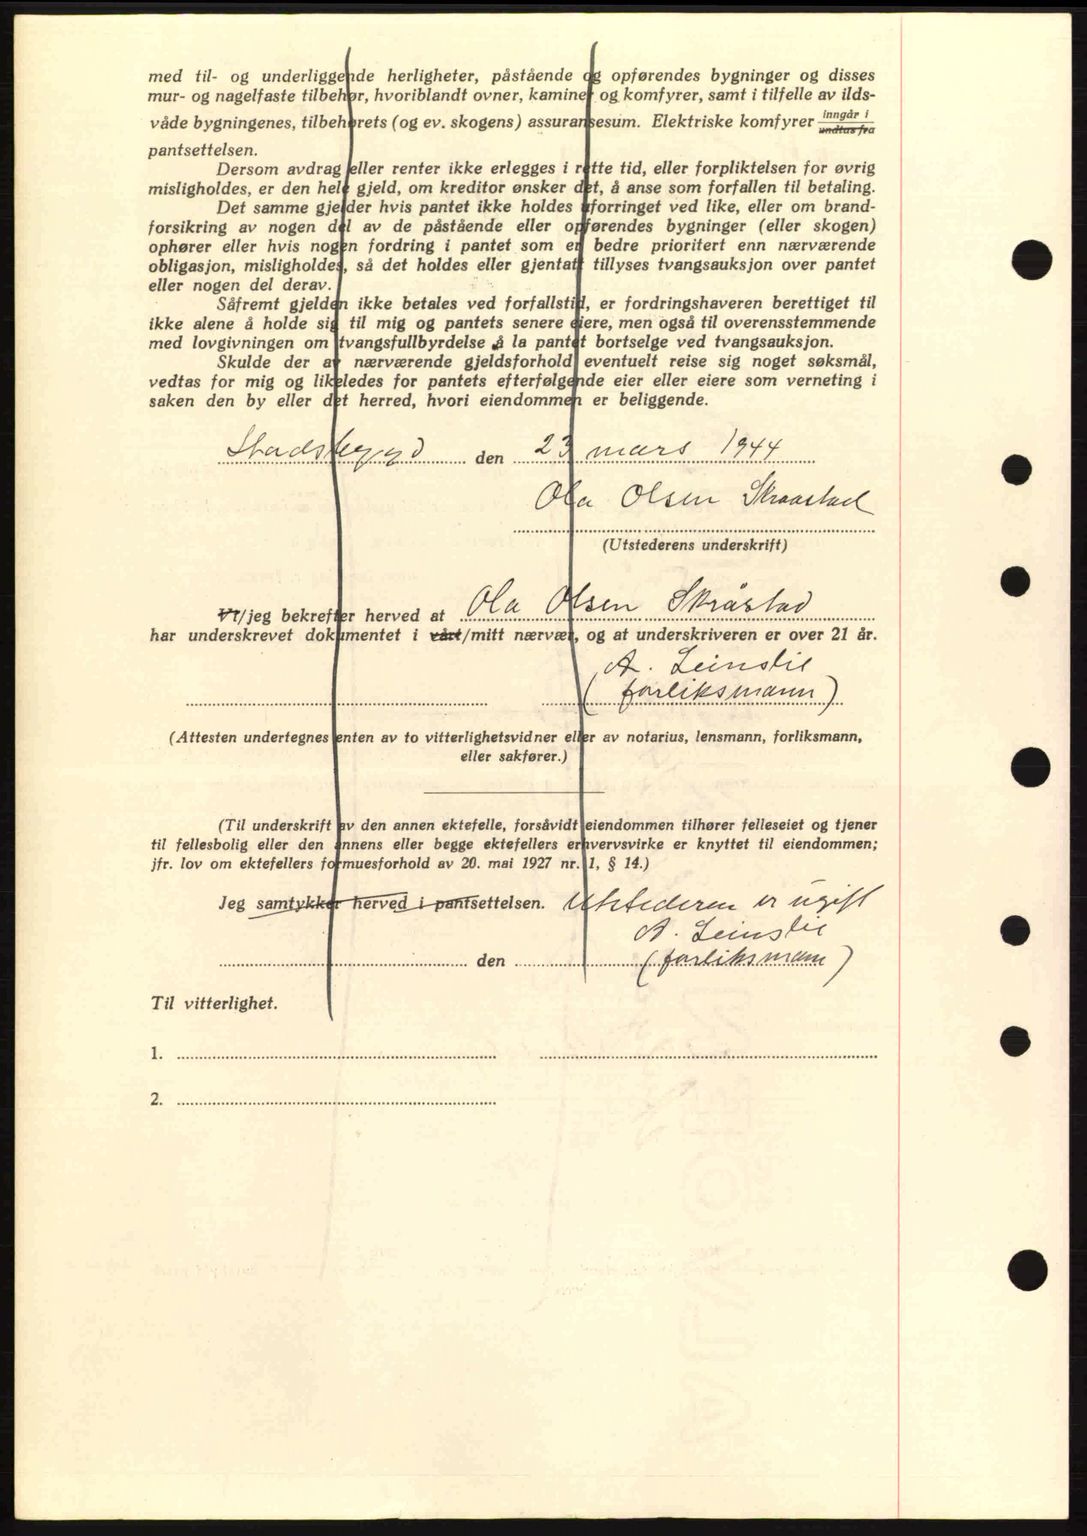 med til- og underliggende herligheter, påstående og opførendes bygninger og disses
mur- og nagelfaste tilbehør, hvoriblandt ovner, kaminer og komfyrer, samt i tilfelle av ilds-
våde bygningenes, tilbehørets (og ev. skogens) assuransesum. Elektriske komfyrer inngår i
undtas fra
pantsettelsen.
Dersom avdrag eller renter ikke erlegges i rette tid, eller forpliktelsen for øvrig
misligholdes, er den hele gjeld, om kreditor ønsker det, å anse som forfallen til betaling.
Det samme gjelder hvis pantet ikke holdes uforringet ved like, eller om brand-
forsikring av nogen del av de påstående eller opførendes bygninger (eller skogen)
ophører eller hvis nogen fordring i pantet som er bedre prioritert enn nærværende
obligasjon, misligholdes, så det holdes eller gjentatt tillyses tvangsauksjon over pantet
eller nogen del derav.
Såfremt gjelden ikke betales ved forfallstid, er fordringshaveren berettiget til
ikke alene å holde sig til mig og pantets senere eiere, men også til overensstemmende
med lovgivningen om tvangsfullbyrdelse å la pantet bortselge ved tvangsauksjon.
Skulde der av nærværende gjeldsforhold eventuelt reise sig noget søksmål,
vedtas for mig og likeledes for pantets efterfølgende eier eller eiere som verneting i
saken den by eller det herred, hvori eiendommen er beliggende.
Stadsbygd den 23 mars 1944
Ola Olsen Skraastad
(Utstederens underskrift)
Vi/jeg bekrefter herved at Ola Olsen Skråstad
har underskrevet dokumentet i vårt/mitt nærvær, og at underskriveren er over 21 år.
A. Leinslie
(forliksmann)
(Attesten undertegnes enten av to vitterlighetsvidner eller av notarius, lensmann, forliksmann,
eller sakfører.)
(Til underskrift av den annen ektefelle, forsåvidt eiendommen tilhører felleseiet og tjener
til fellesbolig eller den annens eller begge ektefellers erhvervsvirke er knyttet til eiendommen;
jfr. lov om ektefellers formuesforhold av 20. mai 1927 nr. 1, § 14.)
Jeg samtykker herved i pantsettelsen. Utstederen er ugift
A. Leinslie
den (forliksmann)
Til vitterlighet.
1.
2.